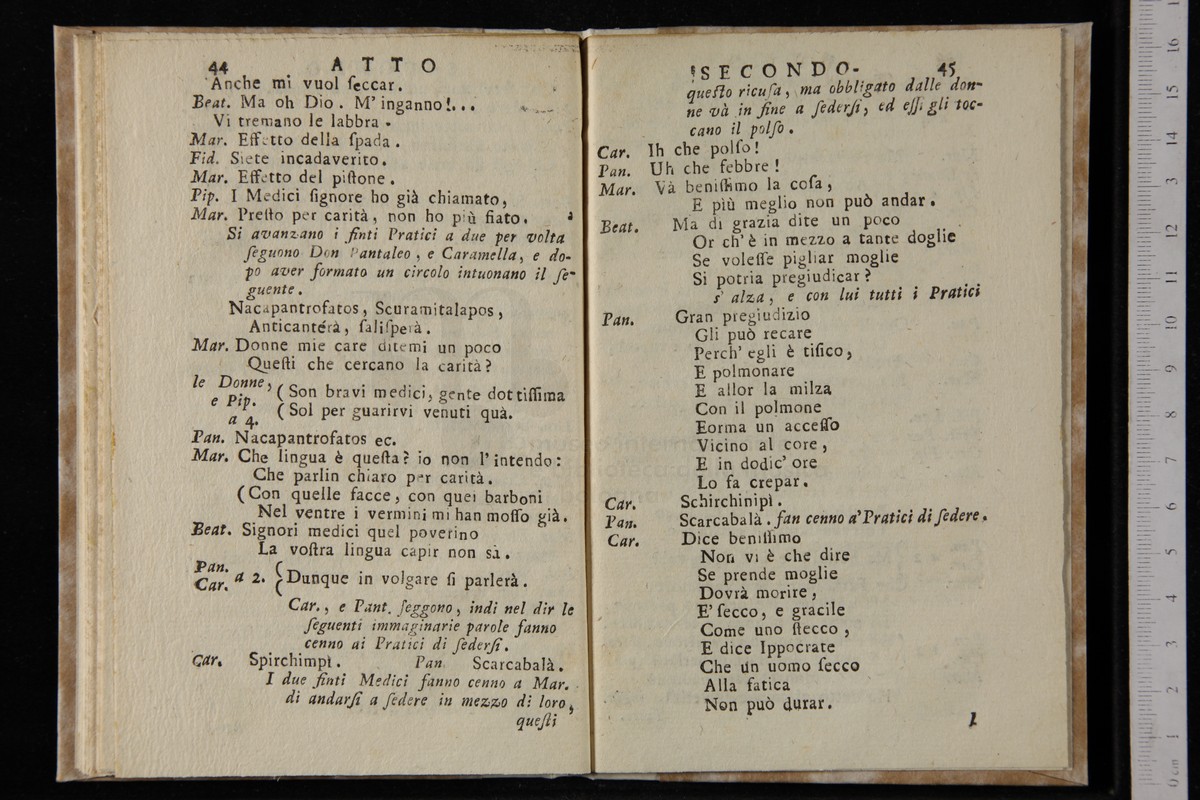 44 ATTO
Anche mi vuol ſeccar.
Beat. Ma oh Dio. M' inganno!...
Vi tremano le labbra.
Mar. Effetto della ſpada.
Fid. Siete incadaverito.
Mar. Effetto del piſtone.
Pip. I Medici ſignore ho già chiamato,
Mar. Preſto per carità, non ho più fiato.
Si avanzano i finti Pratici a due per volta
ſeguono Don Pantaleo, e Caramella, e do-
po aver formato un circolo intuonano il ſe-
guente.
Nacapantrofatos, Scuramitalapos,
Anticantérà, ſaliſperà.
Mar. Donne mie care ditemi un poco
Queſti che cercano la carità?
le Donne, e Pip. a 4. ( Son bravi medici, gente dottiſſima
( Sol per guarirvi venuti quà.
Pan. Nacapantrofatos ec.
Mar. Che lingua è queſta? io non l' intendo:
Che parlin chiaro per carità.
(Con quelle facce, con quei barboni
Nel ventre i vermini mi han moſſo già.
Beat. Signori medici quel poverino
La voſtra lingua capir non sà.
Pan. Car. a 2. { Dunque in volgare ſi parlerà.
Car., e Pant. ſeggono, indi nel dir le
ſeguenti immaginarie parole fanno
cenno ai Pratici di ſederſi.
Car. Spirchimpì. Pan. Scarcabalà.
I due finti Medici fanno cenno a Mar.
di andarſi a ſedere in mezzo di loro,
queſti
SECONDO. 45
queſto ricuſa, ma obbligato dalle don-
ne và in fine a ſederſi, ed eſſi gli toc-
cano il polſo.
Car. Ih che polſo!
Pan. Uh che febbre!
Mar. Và beniſſimo la coſa,
E più meglio non può andar.
Beat. Ma di grazia dite un poco
Or ch' è in mezzo a tante doglie
Se voleſſe pigliar moglie
Si potria pregiudicar?
s' alza, e con lui tutti i Pratici
Pan. Gran pregiudizio
Gli può recare
Perch' egli è tiſico,
E polmonare
E allor la milza
Con il polmone
Eorma un acceſſo
Vicino al core,
E in dodic' ore
Lo fa crepar.
Car. Schirchinipì.
Pan. Scarcabalà. fan cenno a' Pratici di ſedere.
Car. Dice beniſſimo
Non vi è che dire
Se prende moglie
Dovrà morire,
E' ſecco, e gracile
Come uno ſtecco,
E dice Ippocrate
Che un uomo ſecco
Alla fatica
Non può durar.